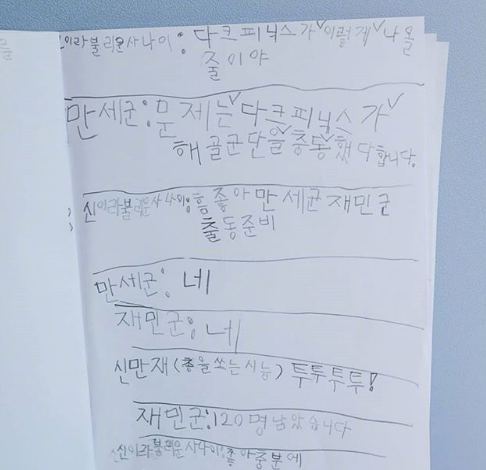 신이라불리운사나이: 다크피닉스가 이렇게 나올
줄이야
만세군: 문제는 다크피닉스가
해골군단을 충동했다합니다.
신이라불리운사나이: 흠 좋아 만세군 재민군
출동준비
만세군: 네
재민군: 네
신만재(총을 쏘는시늉) 투투투투!
재민군: 120명남았습니다
신이라불리운사나이: 좋아 중분에